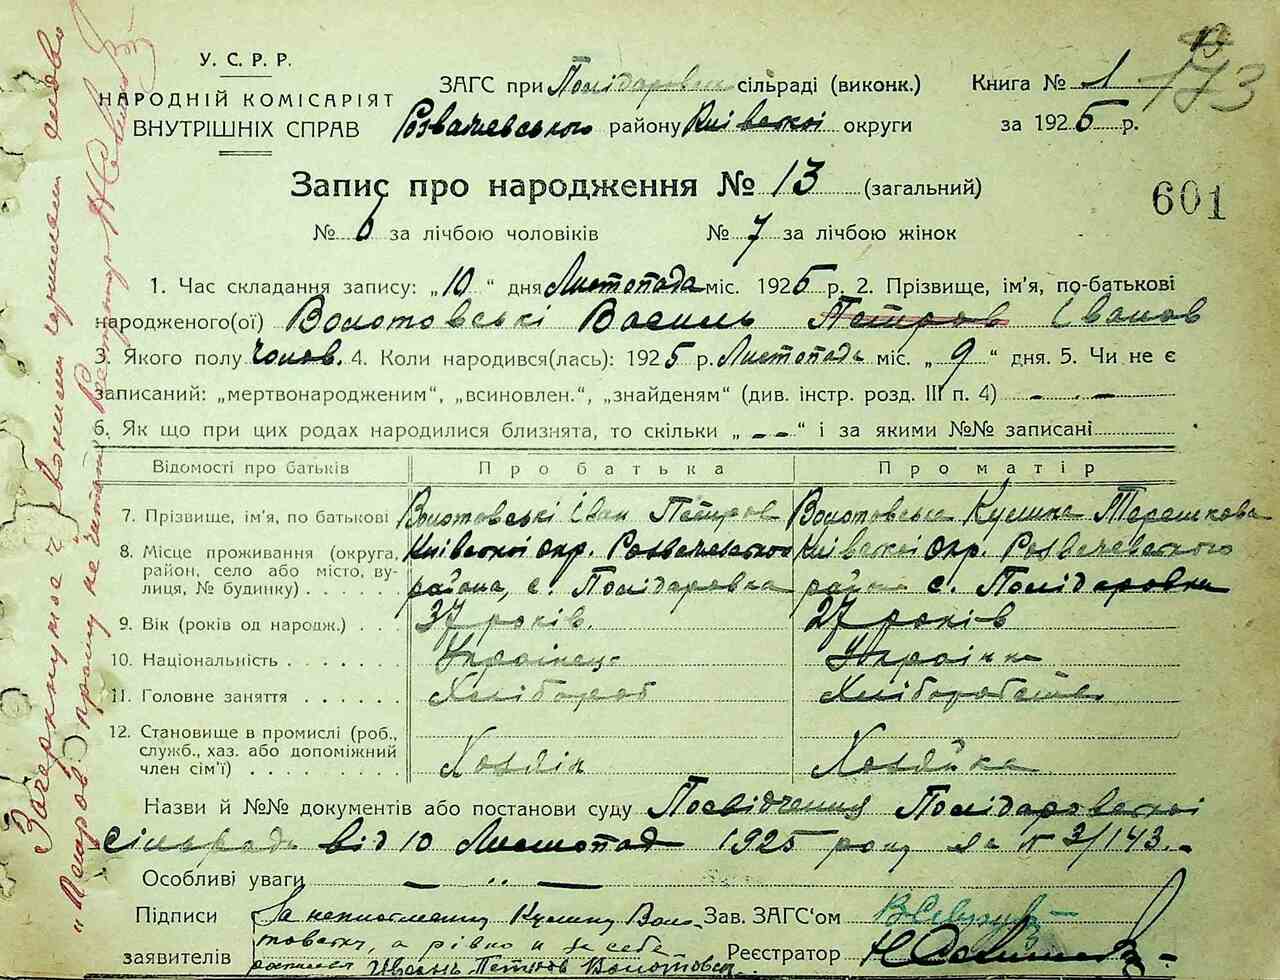 У. С. Р. Р.
НАРОДНІЙ КОМІСАРІЯТ
ВНУТРІШНІХ СПРАВ
ЗАГС при Полідаровск сільраді (виконк.)
Розважевського району Київської округи
Книга № 1
за 1925 р.
173
601
Запис про народження № 13 (загальний)
№ 6 за лічбою чоловіків № 7 за лічбою жінок
1. Час складання запису: „10“ дня Листопада міс. 1925 р. 2. Прізвище, ім'я, по-батькові
народженого(ої) Волотовські Василь Петров Іванов
3. Якого полу чолов. 4. Коли народився(лась): 1925 р. Листопада міс. „9“ дня. 5. Чи не є
записаний: „мертвонародженим“, „всиновлен.“, „знайденям“ (див. інстр. розд. III п. 4) - . -
6. Як що при цих родах народилися близнята, то скільки „ - - “ і за якими №№ записані
Відомості про батьків Про батька Про матір
7. Прізвище, ім'я, по батькові Волотовські Іван Петров Волотовська Кулина Терешкова
8. Місце проживання (округа, Київської окр. Розважевського Київської окр. Розважевського
район, село або місто, ву-
лиця, № будинку) района, с. Полідаровка район с. Полідаровка
9. Вік (років од народж.) 37 років. 27 років
10. Національність Українець Українка
11. Головне заняття Хлібороб Хліборобства
12. Становище в промислі (роб.,
служб., хаз. або допоміжний
член сім'ї) Хозяін Хозяйка
Назви й №№ документів або постанови суду Посвідчення Полідаровської
сільради від 10 Листопад 1925 року за № 3/143.-
Особливі уваги — .. —
Підписи За неписменну Кулину Воло- Зав. ЗАГС'ом
товську, а рівно и за себе
заявителів росписел Ивань Петров Волотовск Реєстратор
Зачеркнуте червоним чернилом слово
„Петров“ прошу не читать Реєстратор